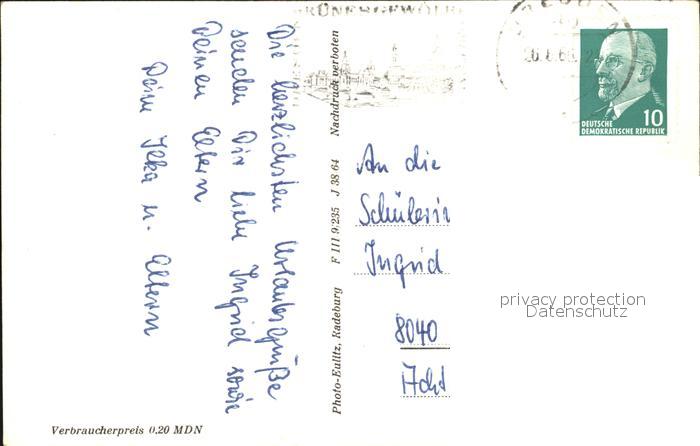 Die herzlichsten Urlaubsgrüße
senden Dir liebe Ingrid sowie
Deinen Eltern
Deine Ilka u. Eltern
Verbraucherpreis 0,20 MDN
Photo-Eulitz, Radeburg F III 9/235 J 38 64 Nachdruck verboten
GRÜNES GEWÖLBE
DEUTSCHE
DEMOKRATISCHE REPUBLIK
10
An die
Schülerin
Ingrid
8040
privacy protection
Datenschutz